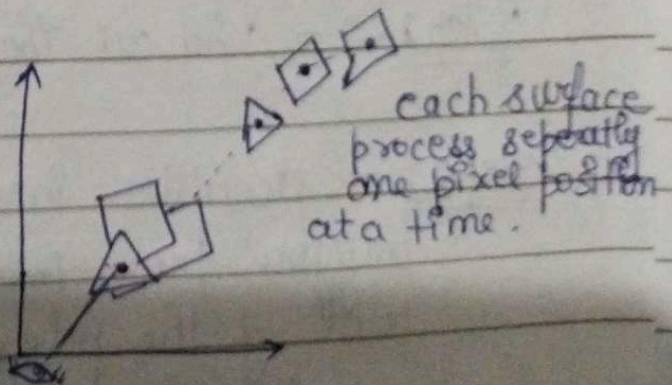 each surface
process seperatly
one pixel position
at a time.